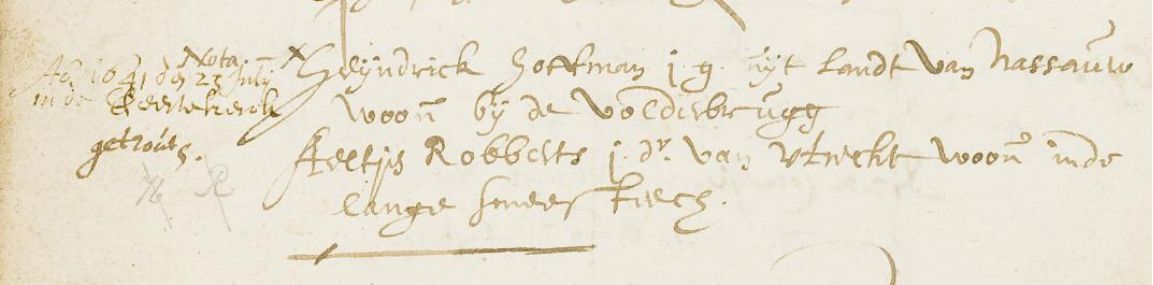 Nota
Ao 1641 den 23 Junij
in de Geertekerck
getrout.
x Heijndrick Hoffman j. g. uijt Landt van Nassauw
woon bij de Volderbrugg
Aeltjs Robberts j. dr. van Utrecht woon inde
lange smeesteech.